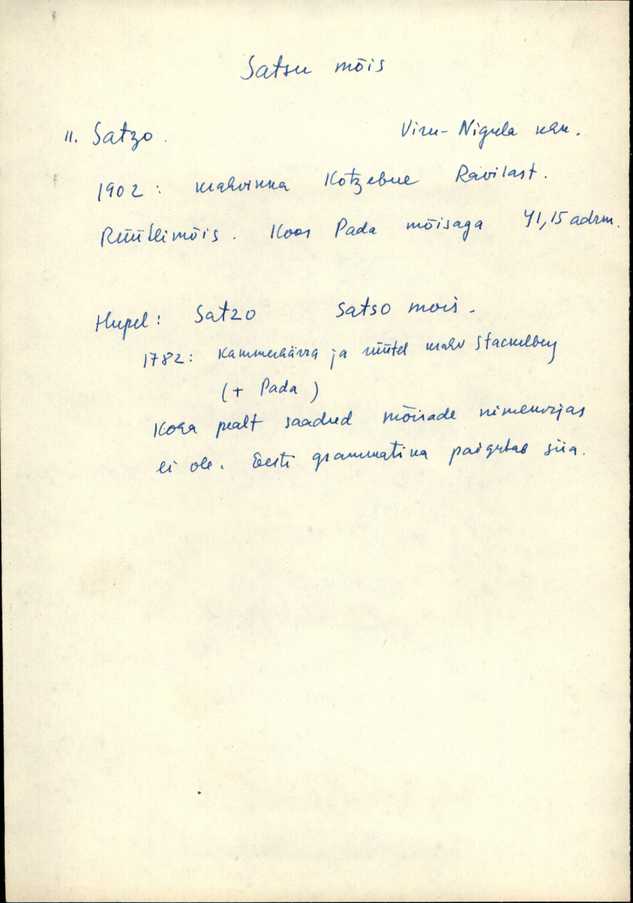 Satsu mõis
11. Satzo. Viru-Nigula khk.
1902: krahvinna Kotzebue Ravilast.
Rüütlimõis. Koos Pada mõisaga 41,15 adrm.
Hupel: Satzo Satso mois.
1782: Kammerhärra ja rüütel krahv Stackelberg
(+ Pada)
Koha pealt saadud mõisade nimekirjas
ei ole. Eesti grammatika paigutab siia.